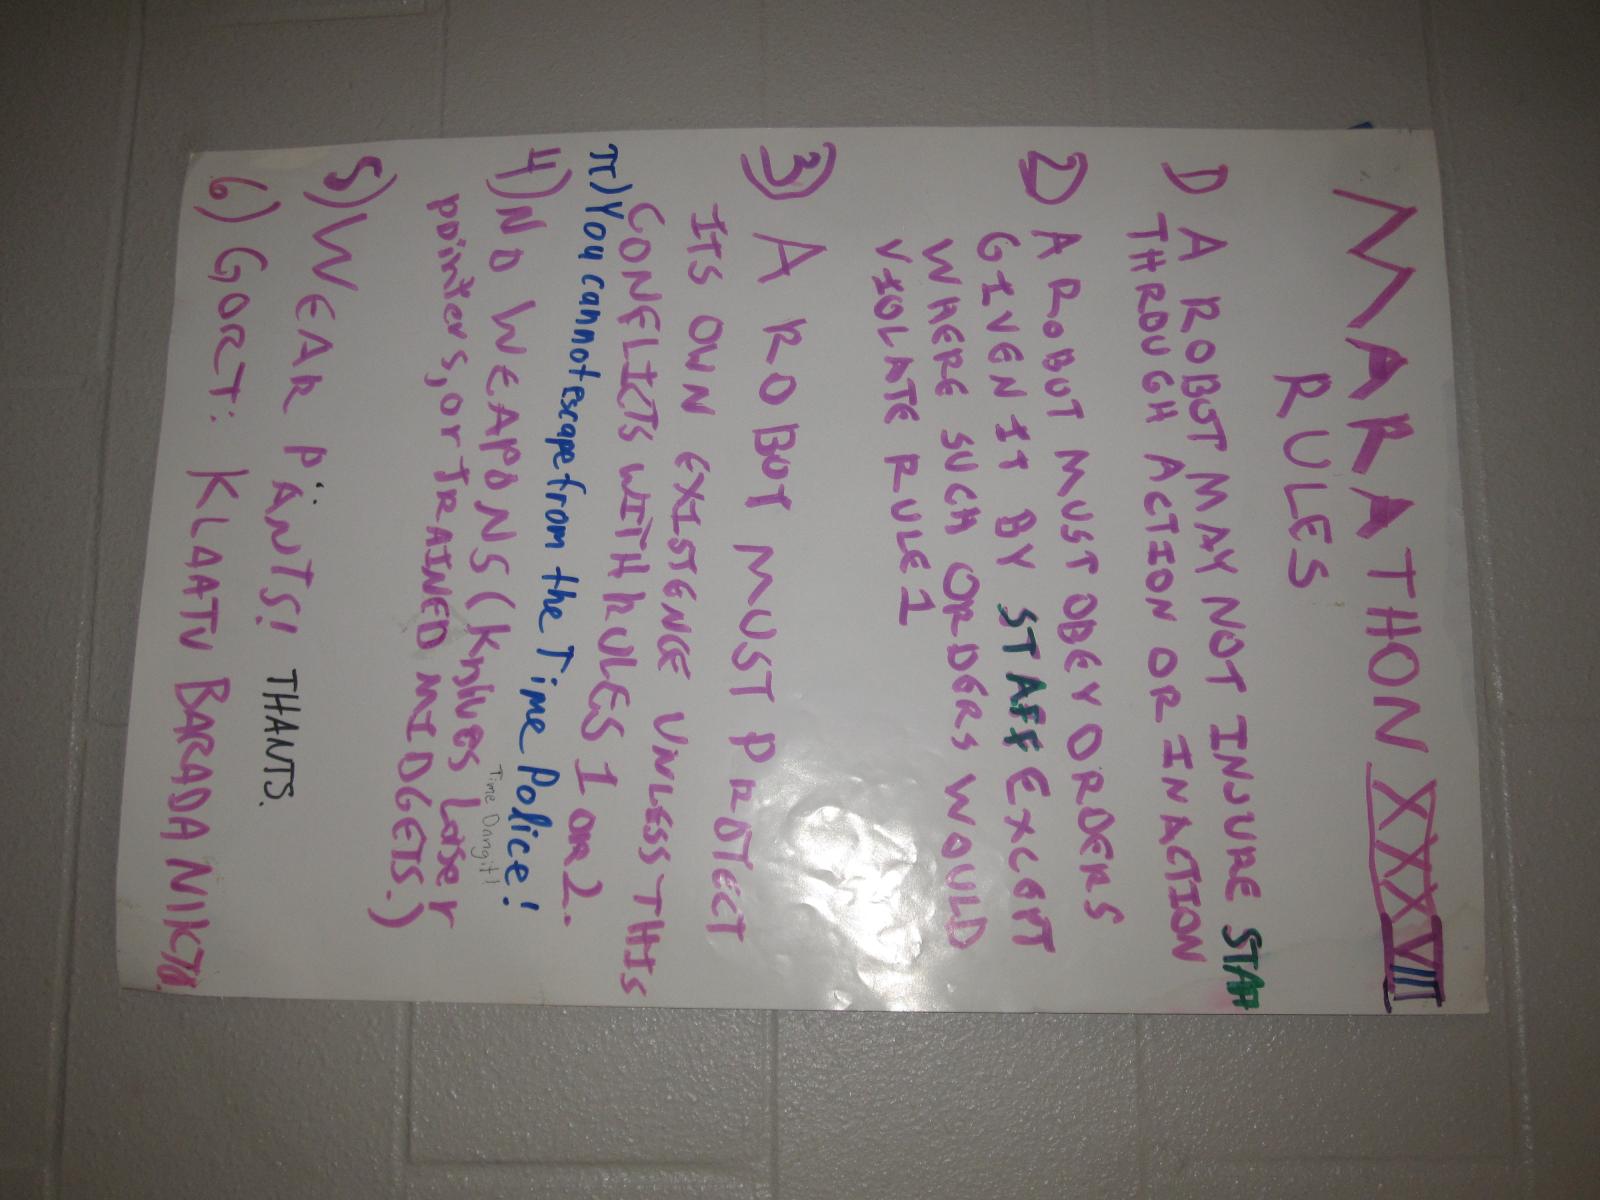 MARATHON XXXVIII
RULES
1) A ROBOT MAY NOT INJURE STAFF
THROUGH ACTION OR INACTION
2) A ROBOT MUST OBEY ORDERS
GIVEN IT BY STAFF EXCEPT
WHERE SUCH ORDERS WOULD
VIOLATE RULE 1
3) A ROBOT MUST PROTECT
ITS OWN EXISTENCE UNLESS THIS
CONFLICTS WITH RULES 1 OR 2.
π) You cannot escape from the Time Police!
Time Dangit!
4) NO WEAPONS (Knives Laser
pointers, or TRAINED MIDGETS.)
5) WEAR PÄNTS! THANTS.
6) GORT: KLAATU BARADA NIKTO.